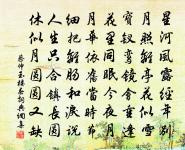 星河風露經年別
月照離亭花似雪
寶箏鸞鏡會重逢
花里同眠今夜月
月華依舊當時節
細把離腸和淚說
人生只合鎮長圓
休似月圓圓又缺
蔡伸玉樓春詞